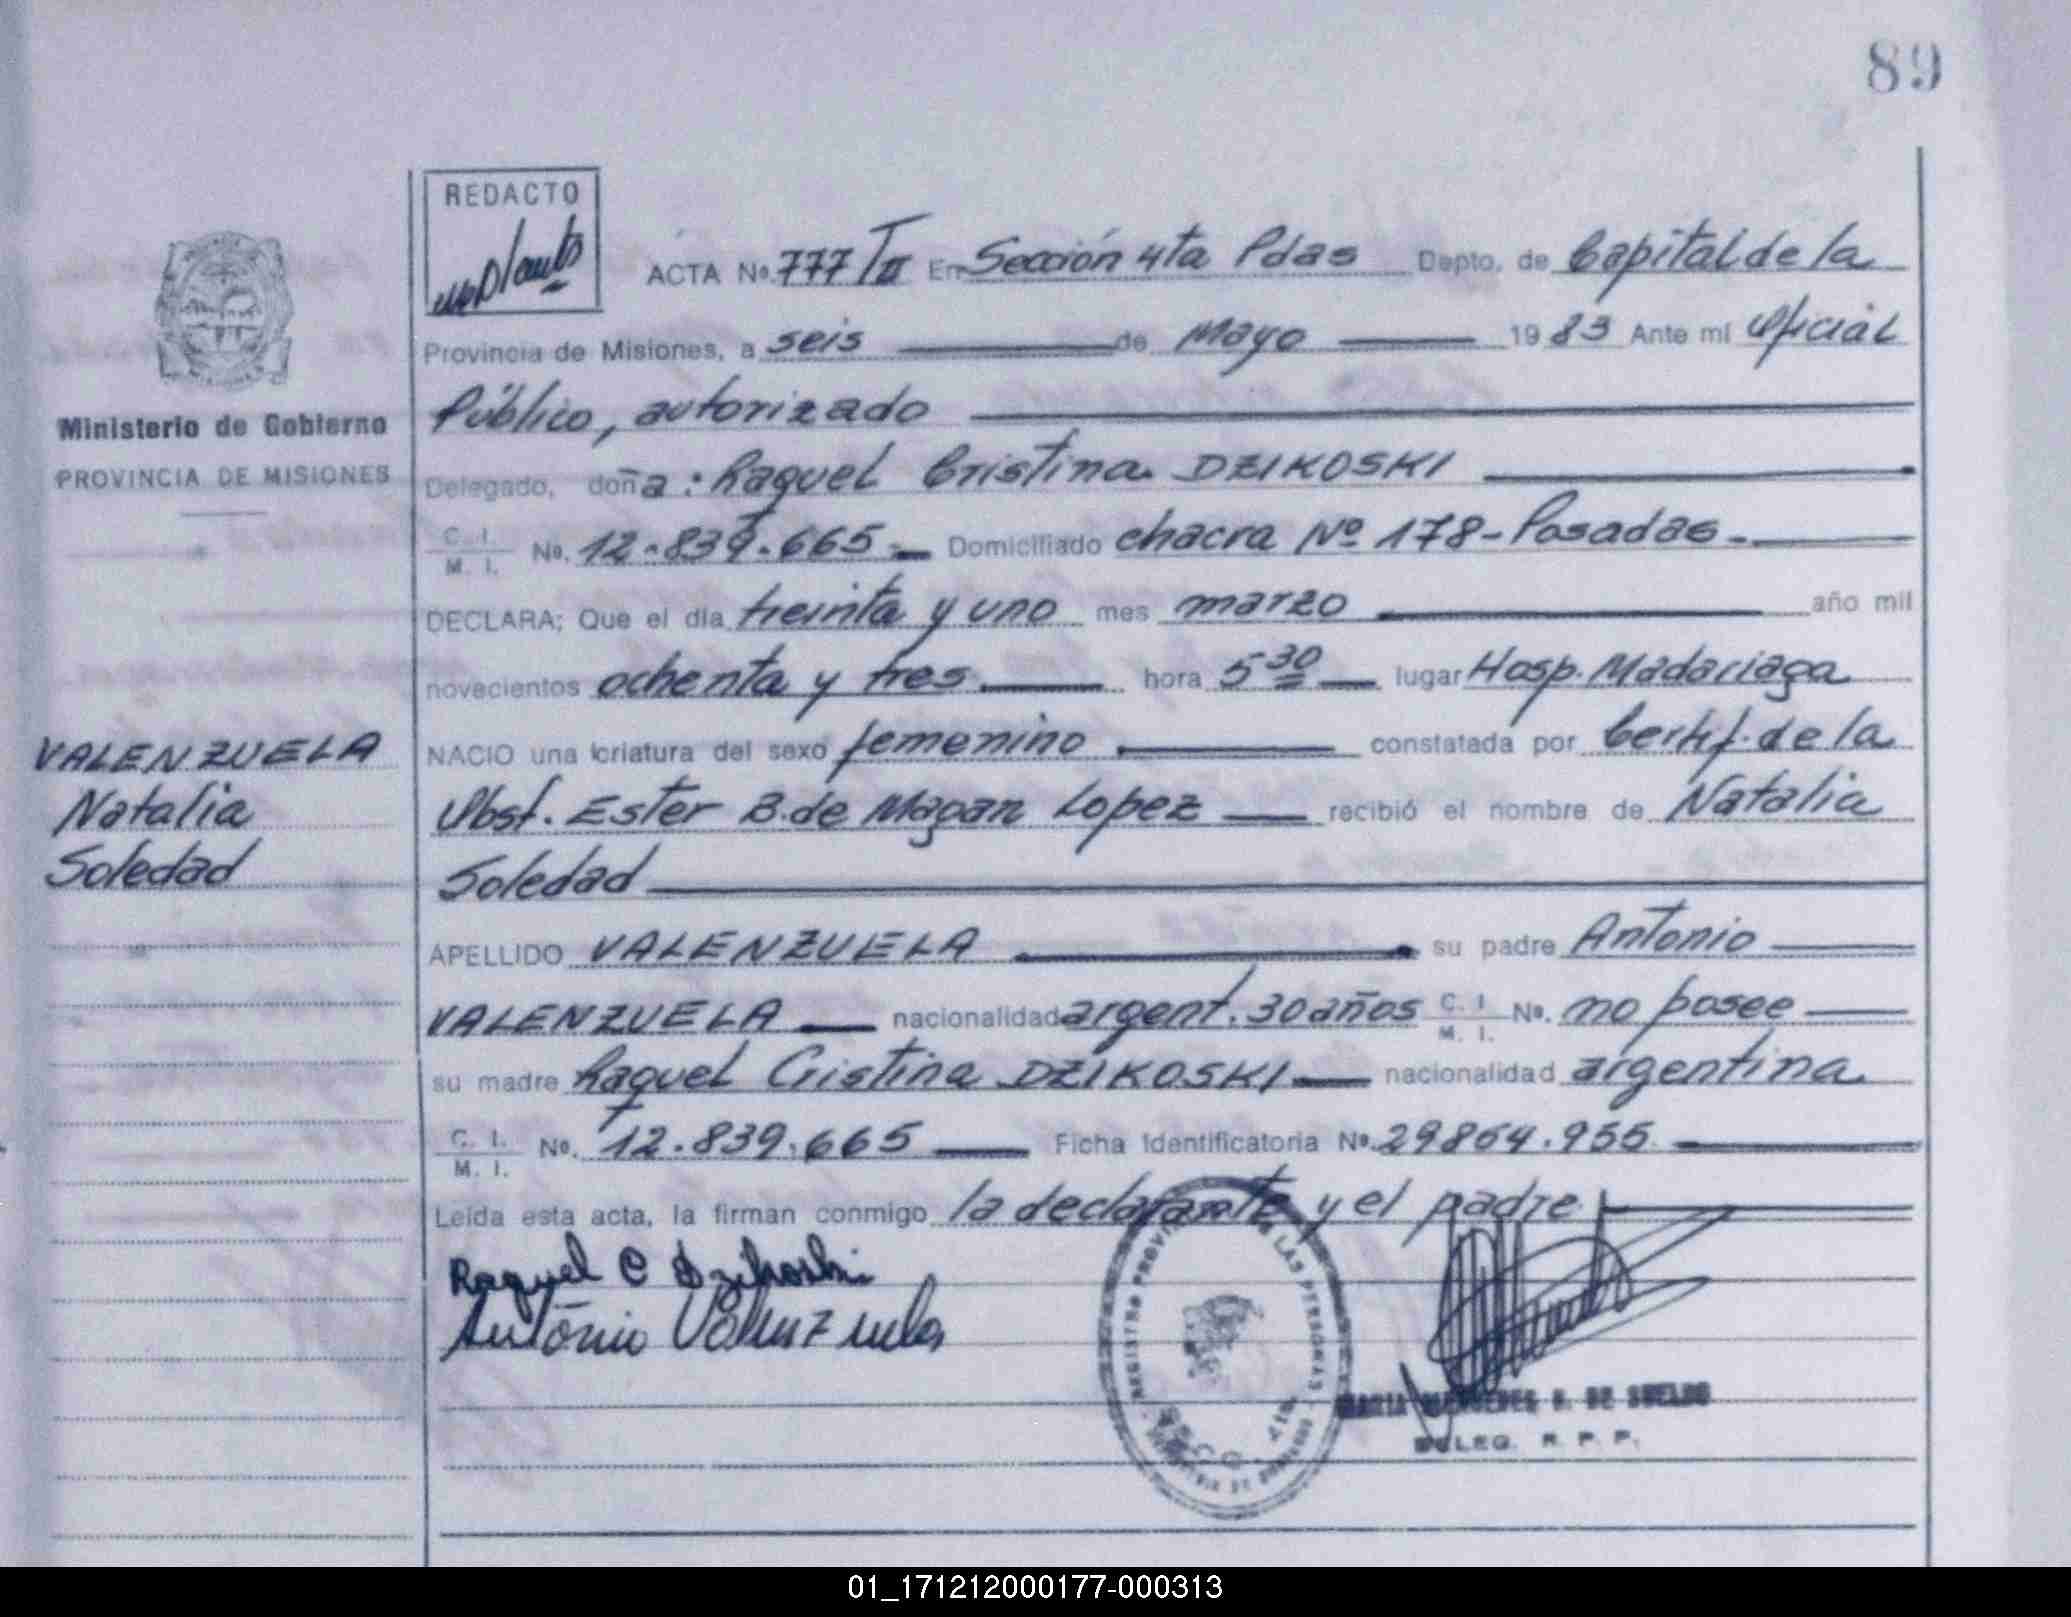 89
REDACTO
ACTA No. 777 T II En Sección 4ta Pdas Depto. de Capital de la
Provincia de Misiones, a seis de Mayo 1983 Ante mí Oficial
Público, autorizado
Ministerio de Gobierno
PROVINCIA DE MISIONES
Delegado, doña: Raquel Cristina DZIKOSKI
C. I. M. I. No. 12.839.665 Domiciliado chacra Nº 178-Posadas.
DECLARA; Que el día treinta y uno mes marzo año mil
novecientos ochenta y tres hora 5 30 lugar Hosp. Madariaga
VALENZUELA
Natalia
Soledad
NACIO una criatura del sexo femenino constatada por Certif. de la
Obst. Ester B. de Magan Lopez recibió el nombre de Natalia
Soledad
APELLIDO VALENZUELA su padre Antonio
VALENZUELA nacionalidad argent. 30 años C. I. M. I. No. no posee
su madre Raquel Cristina DZIKOSKI nacionalidad argentina
C. I. M. I. No. 12.839.665 Ficha Identificatoria No. 29864.955
Leída esta acta, la firman conmigo la declarante y el padre
Raquel C Dzikoski
Antonio Valenzuela
REGISTRO PROVINCIAL DE LAS PERSONAS
MARIA DE SUELDO
DELEG. R. P. P.
01_171212000177-000313